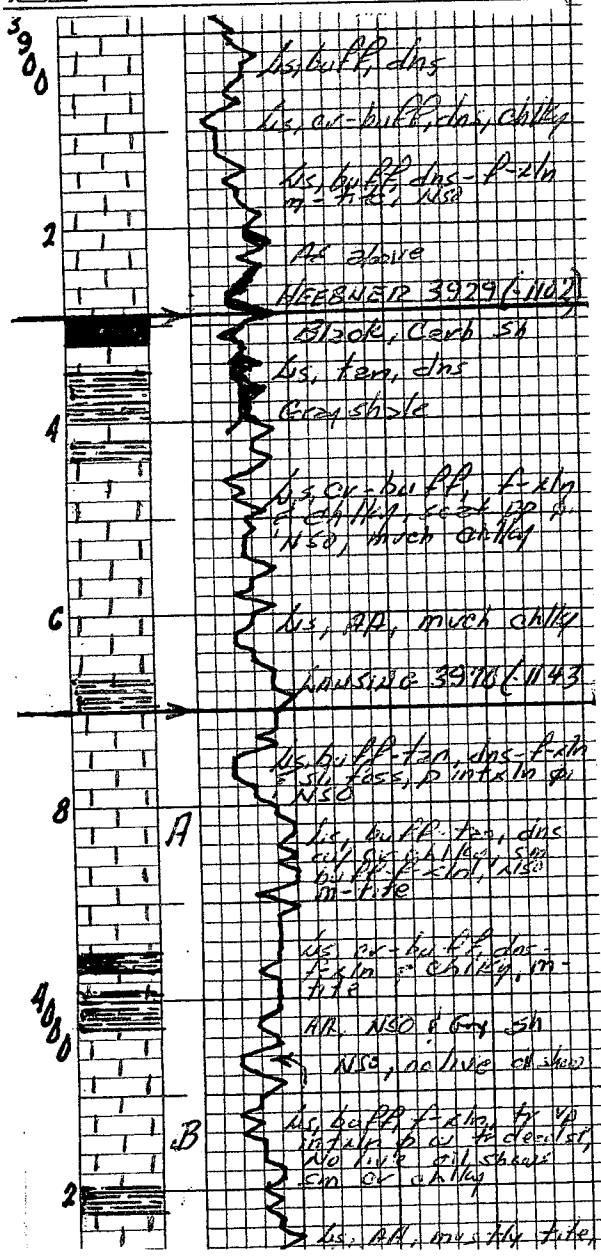 3900
Ls, buff, dns
Ls, cr-buff, dns, chlky
Ls, buff, dns-f-xln
m-tite, NSO
2
As above
HEEBNER 3929 (-1102)
Black, Carb sh
Ls, tan, dns
Gray shale
4
Ls, cr-buff, f-xln
chlky, scat
NSO, much chlky
6
Ls, AA, much chlky
LANSING 3970 (-1143
Ls, buff-tan, dns-f-xln
foss, p intxln φ,
NSO
8
A
Ls, buff-tan, dns
w/ cr chlky, sm
buff-f-xln, NSO
m-tite
Ls, cr-buff, dns-
f-xln chlky, m-
tite
4000
AA, NSO & Gry sh
NSO, no live oil show
B
Ls, buff, f-xln, tr vp
intxln
No live oil shows
sm cr chlky
2
Ls, AA, mostly tite,